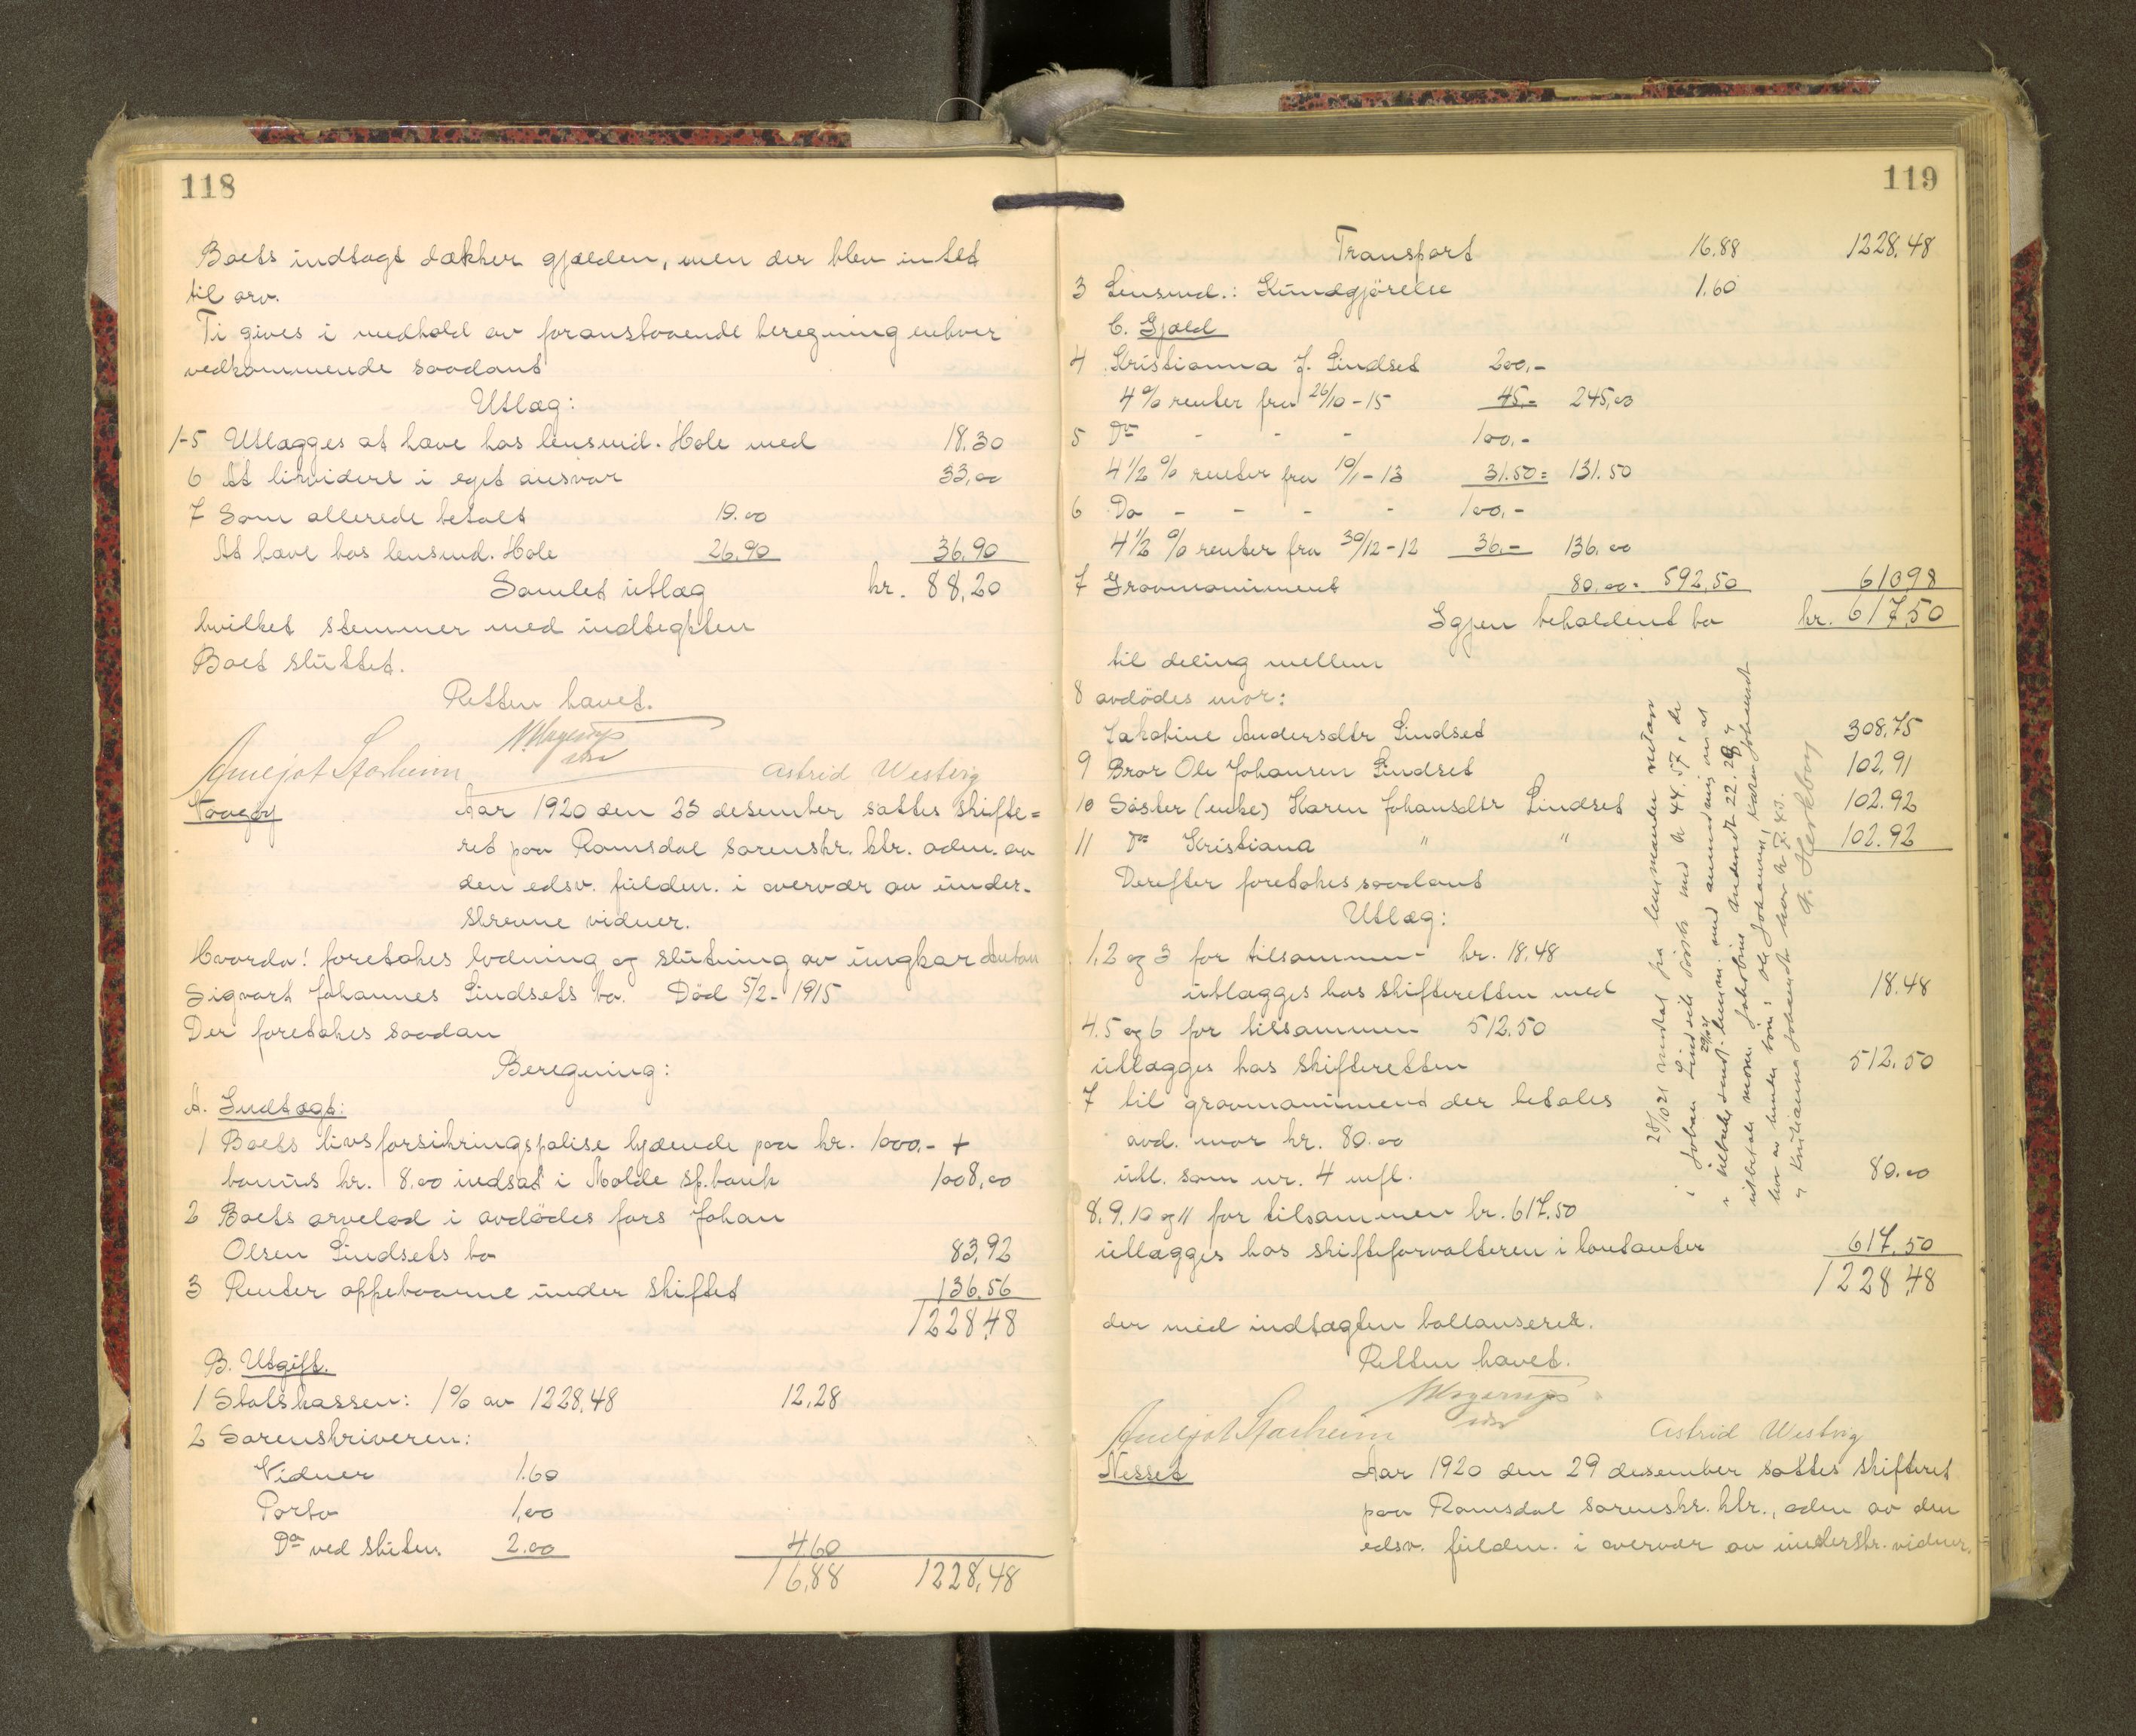 118
Boets indtægt dækker gjælden, men der blev intet
til arv.
Ti gives i medhold av foranstaaende beregning enhver
vedkommende saadant
Utlæg:
1-5 Utlægges at have hos lensmd. Hole med 18.30
6 At likvidere i eget ansvar 33,00
7 Som allerede betalt 19.00
At have hos lensmd. Hole 26,90 36.90
Samlet utlæg kr. 88,20
hvilket stemmer med indtægten
Boet sluttet.
Retten hævet.
Astrid Westvig
Vaagøy Aar 1920 den 23 desember sattes skifte=
ret paa Romsdal sorenskr. ktr. adm. av
den edsv. fuldm. i overvær av under-
skrevne vidner.
Hvorda! foretokes lodning og slutning av ungkar Anton
Sigvart Johannes Lindsets bo. Død 5/2 - 1915
Der foretokes saadan
Beregning:
A. Indtægt:
1 Boets livsforsikringspolise lydende paa kr. 1000.- +
bonus kr. 8.00 indsat i Molde sp.bank 1008,00
2 Boets arvelod i avdødes fars Johan
Olsen Lindsets bo 83,92
3 Renter oppebaarne under skiftet 136.56
1228,48
B. Utgift.
1 Statskassen: 1% av 1228,48 12,28
2 Sorenskriveren:
Vidner 1.60
Porto 1,00
Do ved skiten 2.00 4.60
16,88 1228,48
119
Transport 16.88 1228,48
3 Lensmd.: Kundgjørelse 1.60
C. Gjæld
4 Kristianna J. Lindset 200,-
4% renter fra 26/10 - 15 45.= 245,00
5 Do - - - 100,-
4 1/2 % renter fra 10/1 - 13 31.50 = 131.50
6 Do - - - - 100,-
4 1/2 % renter fra 30/12 - 12 36,- 136,00
7 Gravmonument 80,00 = 592,50 610 98
Igjen beholdent bo kr. 617,50
til deling mellem
8 avdødes mor:
Jakobine Andersdtr Lindset 308,75
9 Bror Ole Johansen Lindset 102,91
10 Søster (enke) Karen Johansdtr Lindset 102.92
11 Do Kristiana " " 102.92
Derefter foretokes saadant
Utlæg:
1,2 og 3 for tilsammen kr. 18.48
utlægges hos skifteretten med 18.48
4.5 og 6 for tilsammen 512.50
utlægges hos skifteretten 512.50
7 til gravmonument der betales
avd. mor kr. 80.00
utl. som nr. 4 mfl. 80.00
8, 9, 10 og 11 for tilsammen kr. 617.50
utlægges hos skifteforvalteren i kontanter 617.50
1228,48
der med indtægten ballanserer.
Retten hævet.
Astrid Westvig
Nesset Aar 1920 den 29 desember sattes skifteret
paa Romsdal sorenskr. ktr., adm av den
edsv. fuldm. i overvær av underskr. vidner.